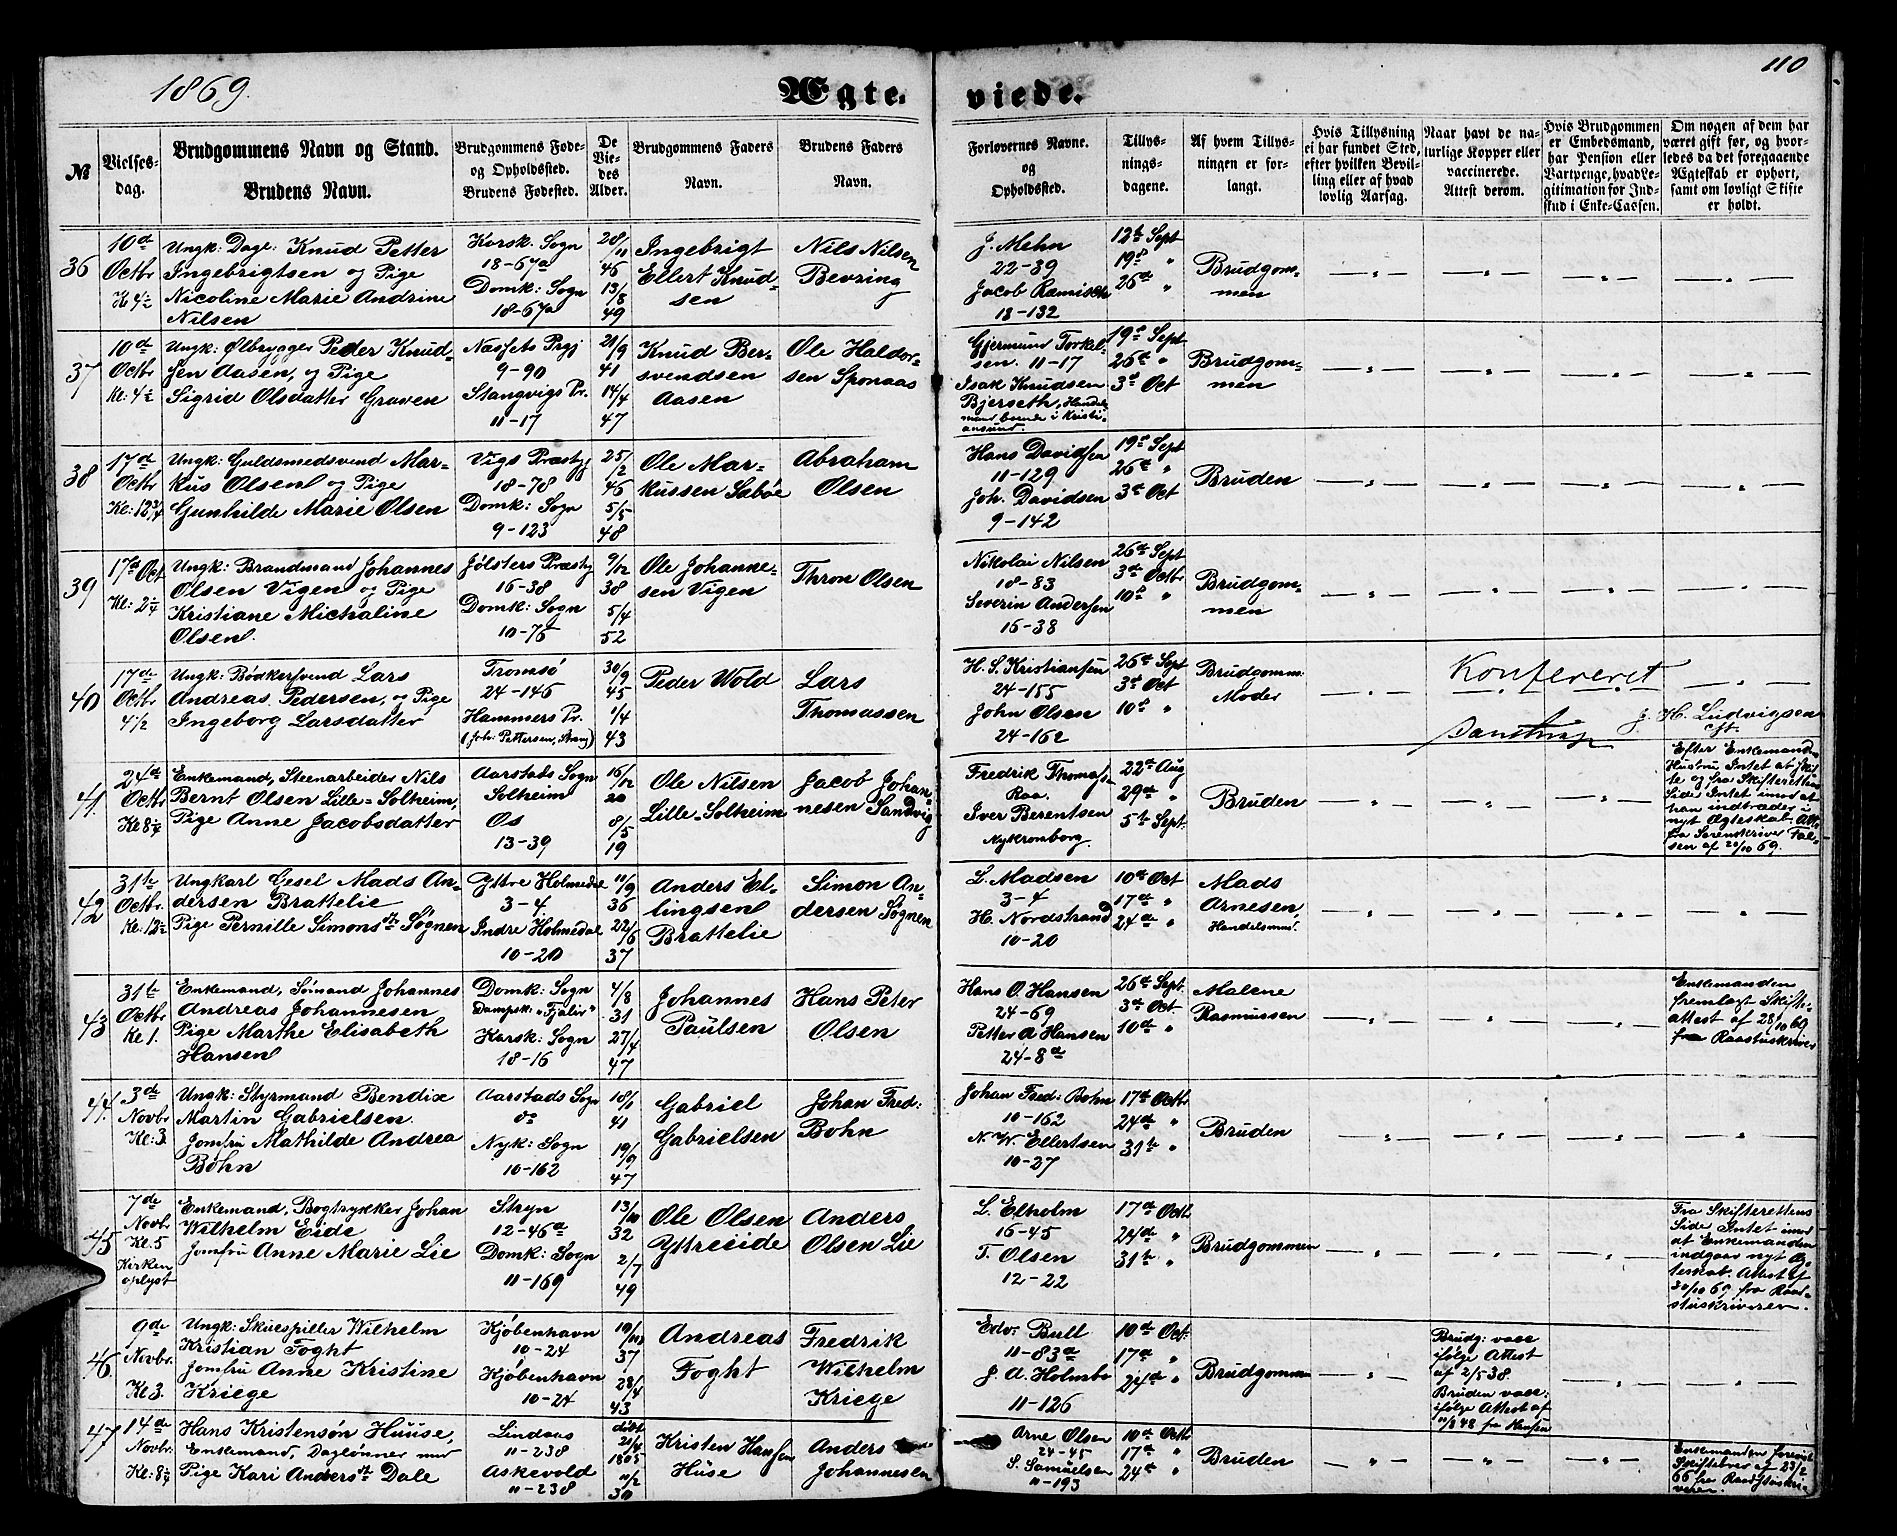 1869.
110
Ægte-
viede.
№
Vielses-
dag.
Brudgommens Navn og Stand.
Brudens Navn.
Brudgommens Føde-
og Opholdssted.
Brudens Fødested.
De
Vie-
des
Alder.
Brudgommens Faders
Navn.
Brudens Faders
Navn.
Forlovernes Navne.
og
Opholdssted.
Tillys-
nings-
dagene.
Af hvem Tillys-
ningen er for-
langt.
Hvis Tillysning
ei har fundet Sted,
efter hvilken Bevil-
ling eller af hvad
lovlig Aarsag.
Naar havt de na-
turlige Kopper eller
vaccinerede.
Attest derom.
Hvis Brudgommen
er Embedsmand,
har Pension eller
Vartpenge, hvad Le-
gitimation for Ind-
skud i Enke-Cassen.
Om nogen af dem har
været gift før, og hvor-
ledes da det foregaaende
Ægteskab er ophørt,
samt om lovligt Skifte
er holdt.
36
10de
Octbr
Kl 4½
Ungk: Dagl: Knud Petter
Ingebrigtsen og Pige
Nicoline Marie Andrine
Nilsen
Korsk: Sogn
18-67a
Domk: Sogn
18-67a
28/11
46
13/8
49
Ingebrigt
Ellert Knud-
sen
Nils Nilsen
Bevring
J. Mehn
22-39
Jacob Ramisch
13-132
12te Sept
19de "
26de "
Brudgom-
men
37
10de
Octbr
Kl: 4½
Ungk: Ølbrygger Peder Knud-
sen Aasen, og Pige
Sigrid Olsdatter Graven
Næssets Prgj
9-90
Stangvigs Pr.
11-17
21/9
41
14/4
47
Knud Ber-
svendsen
Aasen
Ole Haldor-
sen Sponaas
Gjermund Torkel-
sen. 11-17
Isak Knudsen
Bjerseth, Handels
mand boende i Kristi-
ansund.
19de Sept
26de "
3de Oct
Brudgom-
men
38
17de
Octbr
Kl: 12¾
Ungk: Guldsmedsvend Mar-
kus Olsen og Pige
Gunhilde Marie Olsen
Vigs Præstgj
18-78
Domk: Sogn
9-123
25/2
46
5/5
48
Ole Mar-
kussen Sabøe
Abraham
Olsen
Hans Davidsen
11-129
Joh. Davidsen
9-142
19de Sept
26de "
3de Oct
Bruden
39
17de Oct
Kl: 2¼
Ungk: Brandmand Johannes
Olsen Vigen og Pige
Kristiane Michaline
Olsen.
Jølsters Præstgj
16-38
Domk: Sogn
10-75
9/12
38
5/4
52
Ole Johanne-
sen Vigen
Thron Olsen
Nikolai Nilsen
18-83
Severin Andersen
16-38
26de Sept
3de Octbr
10de "
Brudgom-
men
40
17de
Octbr
4½
Ungk: Bødkersvend Lars
Andreas Pedersen, og Pige
Ingeborg Larsdatter
Tromsø
24-146
Hammers Pr.
(Joh: Pettersen, Strang)
30/9
45
1/4
43
Peder Wold
Lars
Thomassen
H. S. Kristiansen
24-155
John Olsen
24-162
26de Sept
3de Oct
10de "
Brudgomm:
Moder
Konfereret
J. H. Ludvigsen
41.
24de
Octbr
Kl 8¼
Enkemand, Steenarbeider Nils
Bernt Olsen Lille-Solheim,
Pige Anne Jacobsdatter
Aarstads Sogn
Solheim
Os
13-39
16/12
20
8/5
19
Ole Nilsen
Lille-Solheim
Jacob Johan-
nesen Sandvig
Fredrik Thomass:
Raa.
Iver Berentsen
Nykronborg.
22de Aug
29de "
5te Sept.
Bruden
Efter Enkemands
Hustru Intet at Skif-
te og fra Skifterettens
Side Intet imod at
han indtræder i
nyt Ægteskab. Att.
fra Sorenskriver Fal-
sen af 20/10 69.
42
31te
Octbr.
Kl: 12½
Ungkarl Gesel Mads An-
dersen Brattelie
Pige Pernille Simonsdtr Søgnen
Yttre Holmedal
3-4
Indre Holmedal
10-20
11/9
36
22/6
37
Anders El-
lingsen
Brattelie
Simon An-
dersen Søgnen
L. Madsen
3-4
H. Nordstrand
10-20
10de Oct
17de "
24de "
Mads
Arnesen,
Handelsmnd.
43
31te
Octbr
Kl 1.
Enkemand, Sømand Johannes
Andreas Johannesen
Pige Marthe Elisabeth
Hansen
Domk: Sogn
Dampsk: "Fjalir"
Korsk: Sogn
18-16
4/8
31
27/4
47
Johannes
Paulsen
Hans Peter
Olsen
Hans O. Hansen
24-69
Petter A Hansen
24-8de
26de Sept.
3de Oct
10de "
Malene
Rasmussen
Enkemanden
fremlagt Skifte-
attest af 28/10 69
fra Raastuskriver
44.
3de
Novbr
Kl: 3.
Ungk: Styrmand Bendix
Martin Gabrielsen.
Jomfru Mathilde Andrea
Bohn
Aarstads Sogn
do
Nyk: Sogn
10-162
18/1
41
19/9
47
Gabriel
Gabrielsen
Johan Fred:
Bohn
Johan Fred: Bohn
10-162
N. W. Ellertsen
10-27
17de Octbr
24de "
31te "
Bruden
45
7de
Novbr
Kl: 5
Kirken
oplyst
Enkemand, Bogtrykker Johan
Wilhelm Eide
Jomfru Anne Marie Lie
Stryn
12-46a
Domk: Sogn
11-169
13/10
32
2/7
49
Ole Olsen
Yttreeide
Anders
Olsen Lie
L. Elholm
16-45
T. Olsen
12-22
17de Octb.
24de "
31te "
Brudgommen
Fra Skifterettens
Side Intet imod
at Enkemanden
indgaar nyt Æg-
teskab. Attest af
30/10 69 fra Raad-
stuskriveren.
46
9de
Novbr.
Kl 3.
Ungk: Skuespiller Wilhelm
Kristian Foght
Jomfru Anne Kristine
Kriege
Kjøbenhavn
10-24
Kjøbenhavn
10-24
10/10
37
28/4
43
Andreas
Foght
Fredrik
Wilhelm
Kriege
Edv: Bull
11-83a
J. A. Holmbo
11-126
10de Oct:
17de "
24de "
Brudgommen
Brudg: vacc
ifølge Attest
af 2/5 38.
Bruden vacc:
ifølge Attest af
11/8 48 fra Hansen
47
14de
Novbr:
Kl: 8½
Hans Kristensøn Huuse,
Enkemand, Daglønner med
Pige Kari Andersdtr Dale
Lindaas
11-238
Askevold
11-238
døbt
21/4
1805
11/2
30
Kristen Hansen
Huse
Anders
Johannesen
Arne Olsen
24-45
S. Samuelsen
11-193
10de Octb
17de "
24de "
Bruden
Enkemanden foreviist
Skiftebrev af 23/2
66 fra Raadstuskri-
veren.